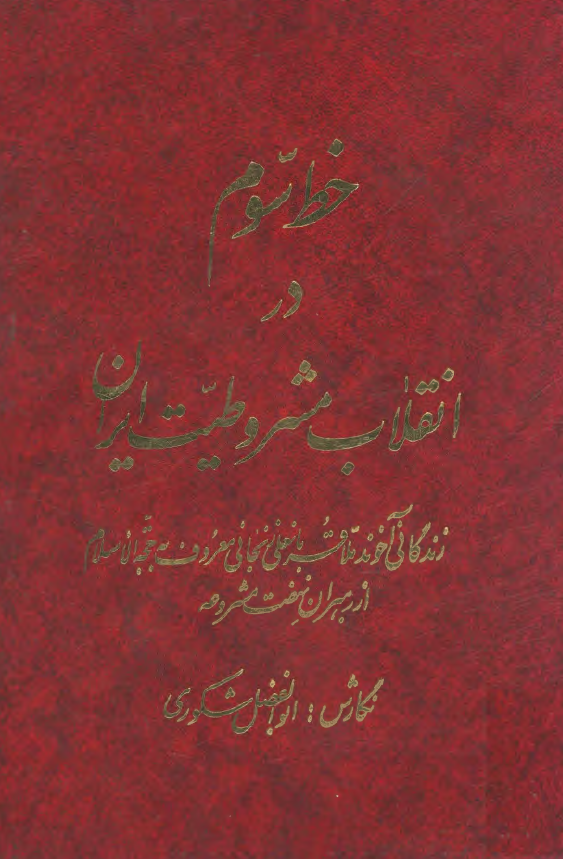 خط سوّم
در
انقلاب مشروطیّت ایران
زندگانی آخوند ملّا قربانعلی زنجانی معروف به حجّة الاسلام
از رهبران نهضت مشروعه
نگارش : ابوالفضل شکوری